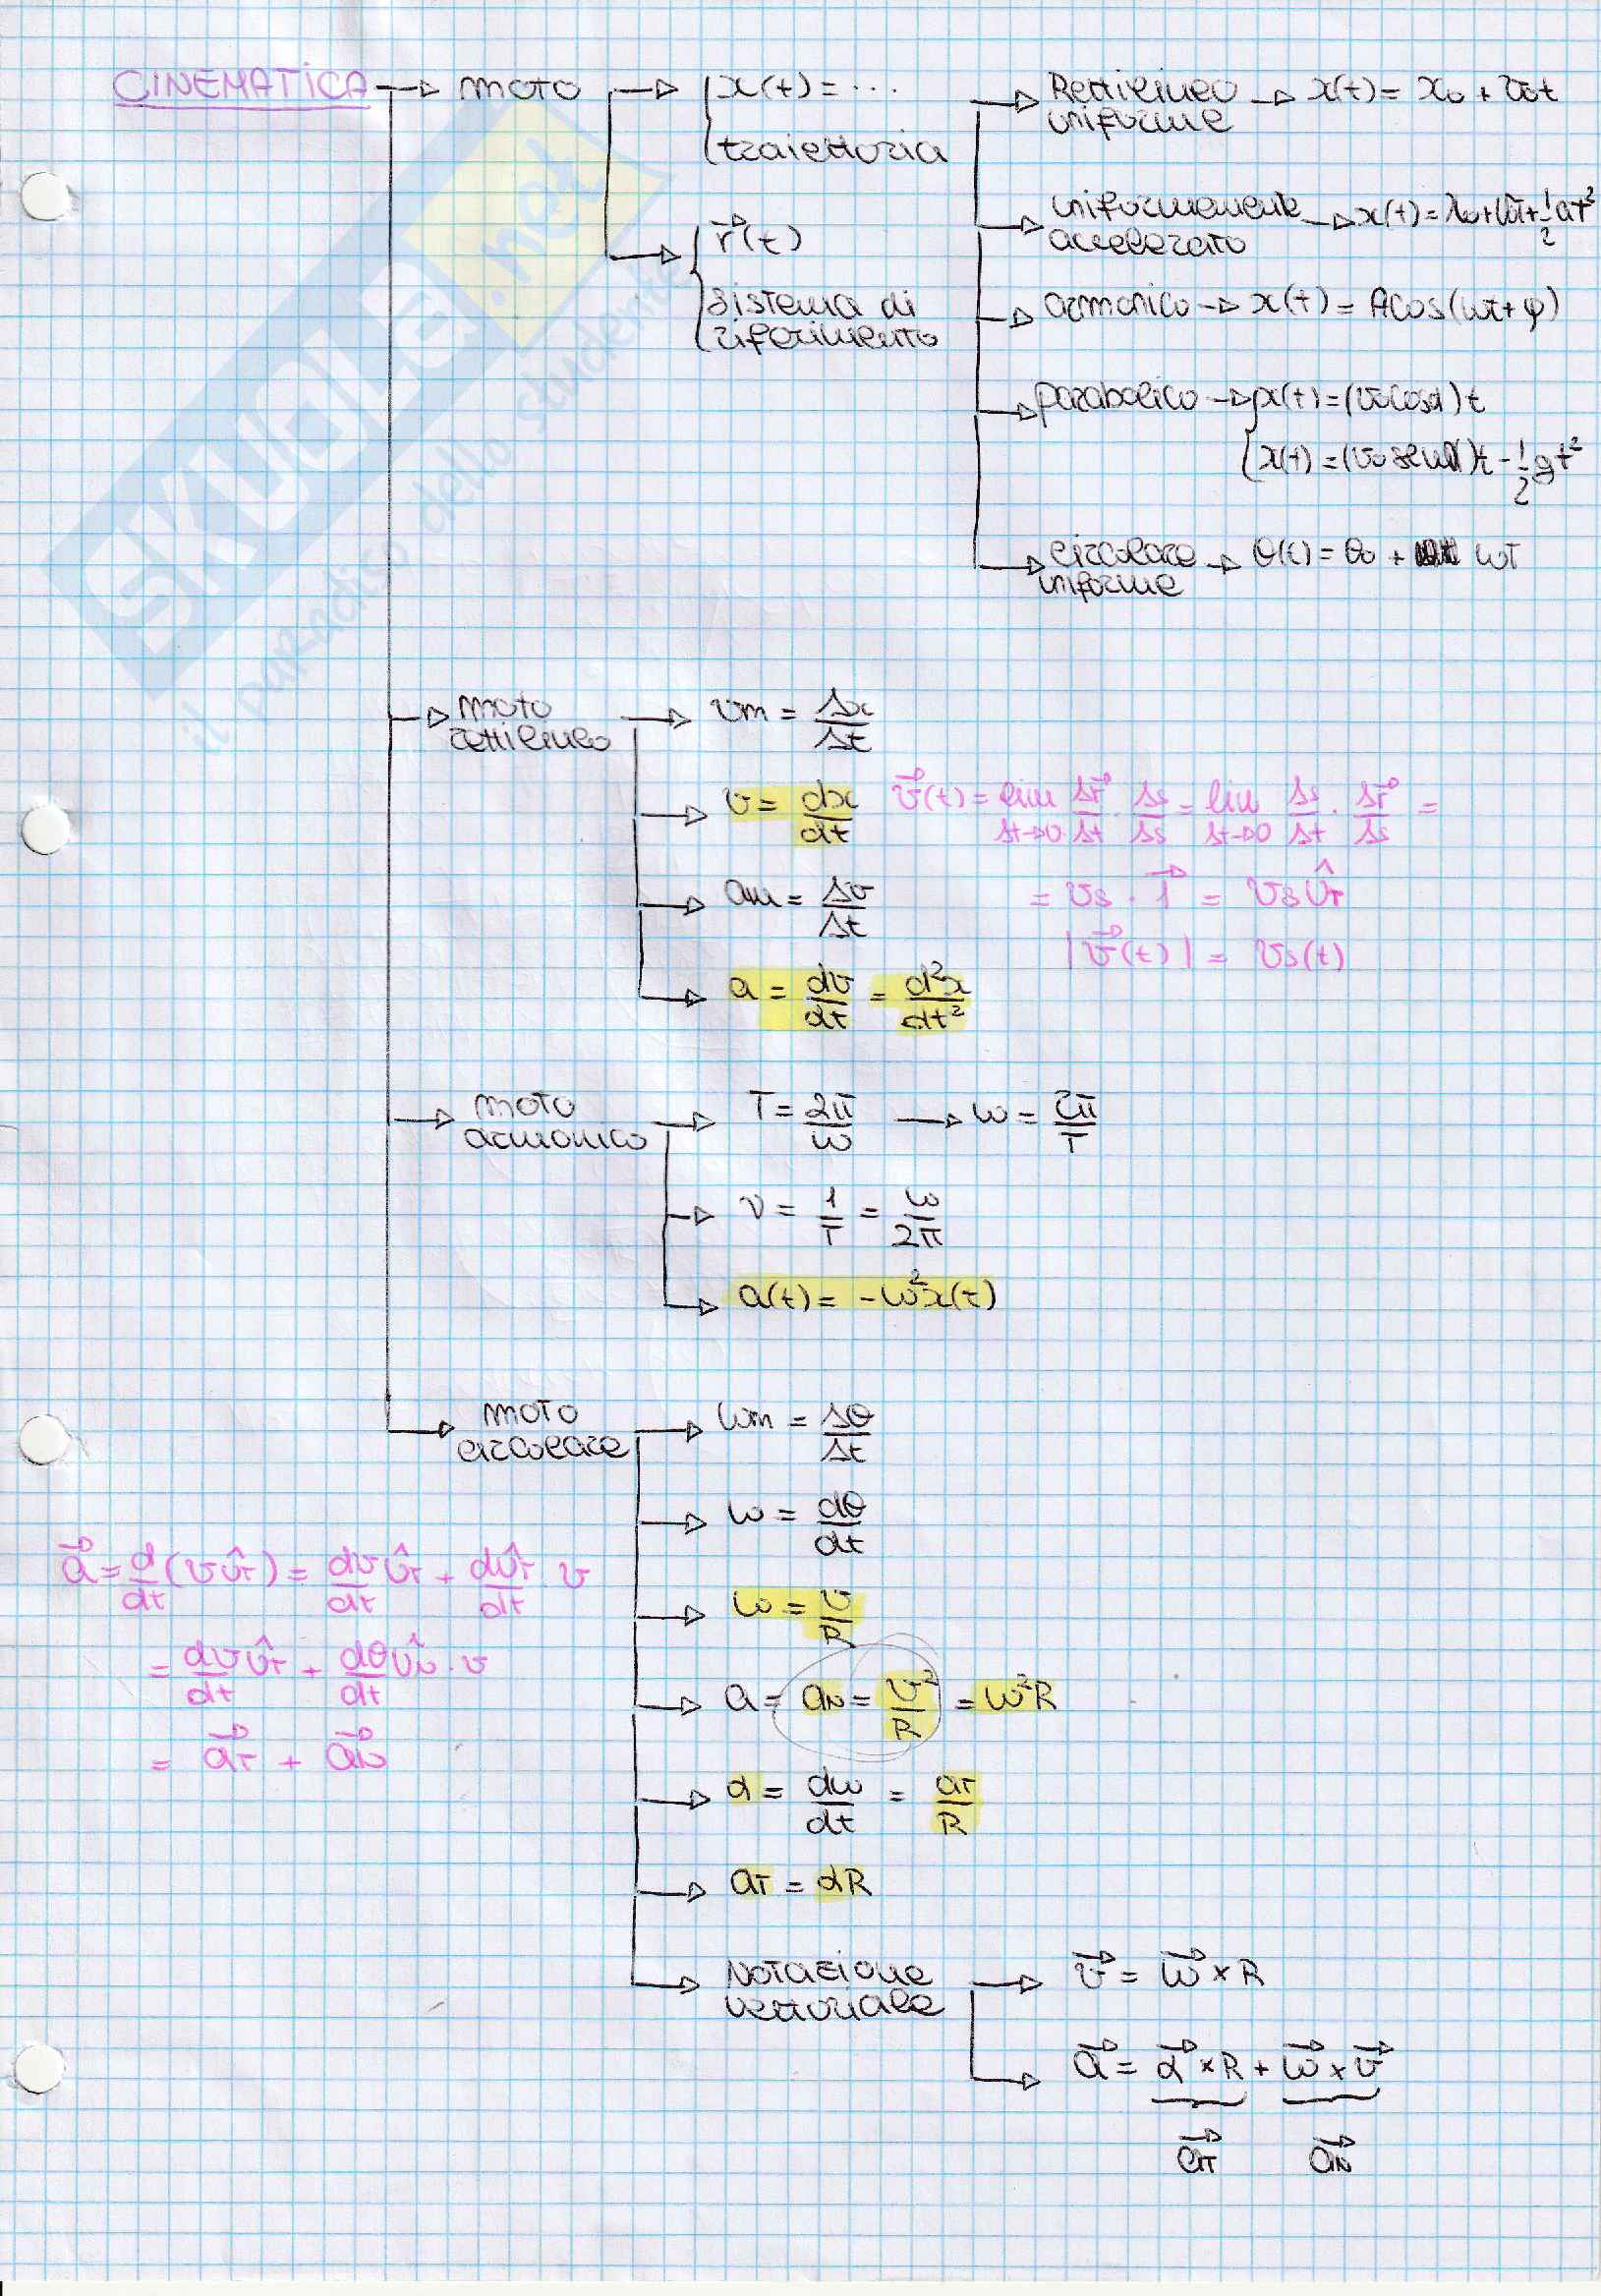 CINEMATICA → moto → { x(t) = ...
traiettoria
→ { r⃗(t)
sistema di
riferimento
→ Rettilineo
uniforme → x(t) = x₀ + v₀t
→ uniformemente
accelerato → x(t) = x₀ + v₀t + 1/2 at²
→ armonico → x(t) = Acos(ωt + φ)
→ parabolico → { x(t) = (v₀cosα)t
x(t) = (v₀ senα)t - 1/2 gt²
→ circolare
uniforme → θ(t) = θ₀ + ωt
→ moto
rettilineo → vm = Δx/Δt
→ v = dx/dt
v⃗(t) = lim Δt→0 Δr⃗/Δt · Δs/Δs = lim Δt→0 Δs/Δt · Δr⃗/Δs =
= vs · 1⃗ = vs ûT
|v⃗(t)| = vs(t)
→ am = Δv/Δt
→ a = dv/dt = d²x/dt²
→ moto
armonico → T = 2π/ω → ω = 2π/T
→ ν = 1/T = ω/2π
→ a(t) = -ω²x(t)
→ moto
circolare → ωm = Δθ/Δt
→ ω = dθ/dt
→ ω = v/R
→ a = aN = v²/R = ω²R
→ α = dω/dt = aT/R
→ aT = αR
→ Notazione
vettoriale → v⃗ = ω⃗ × R
→ a⃗ = α⃗ × R + ω⃗ × v⃗
a⃗T a⃗N
a⃗ = d/dt (v ûT) = dv/dt ûT + dûT/dt · v
= dv/dt ûT + dθ/dt ûN · v
= a⃗T + a⃗N
SKUOLA.net
il paradiso dello studente